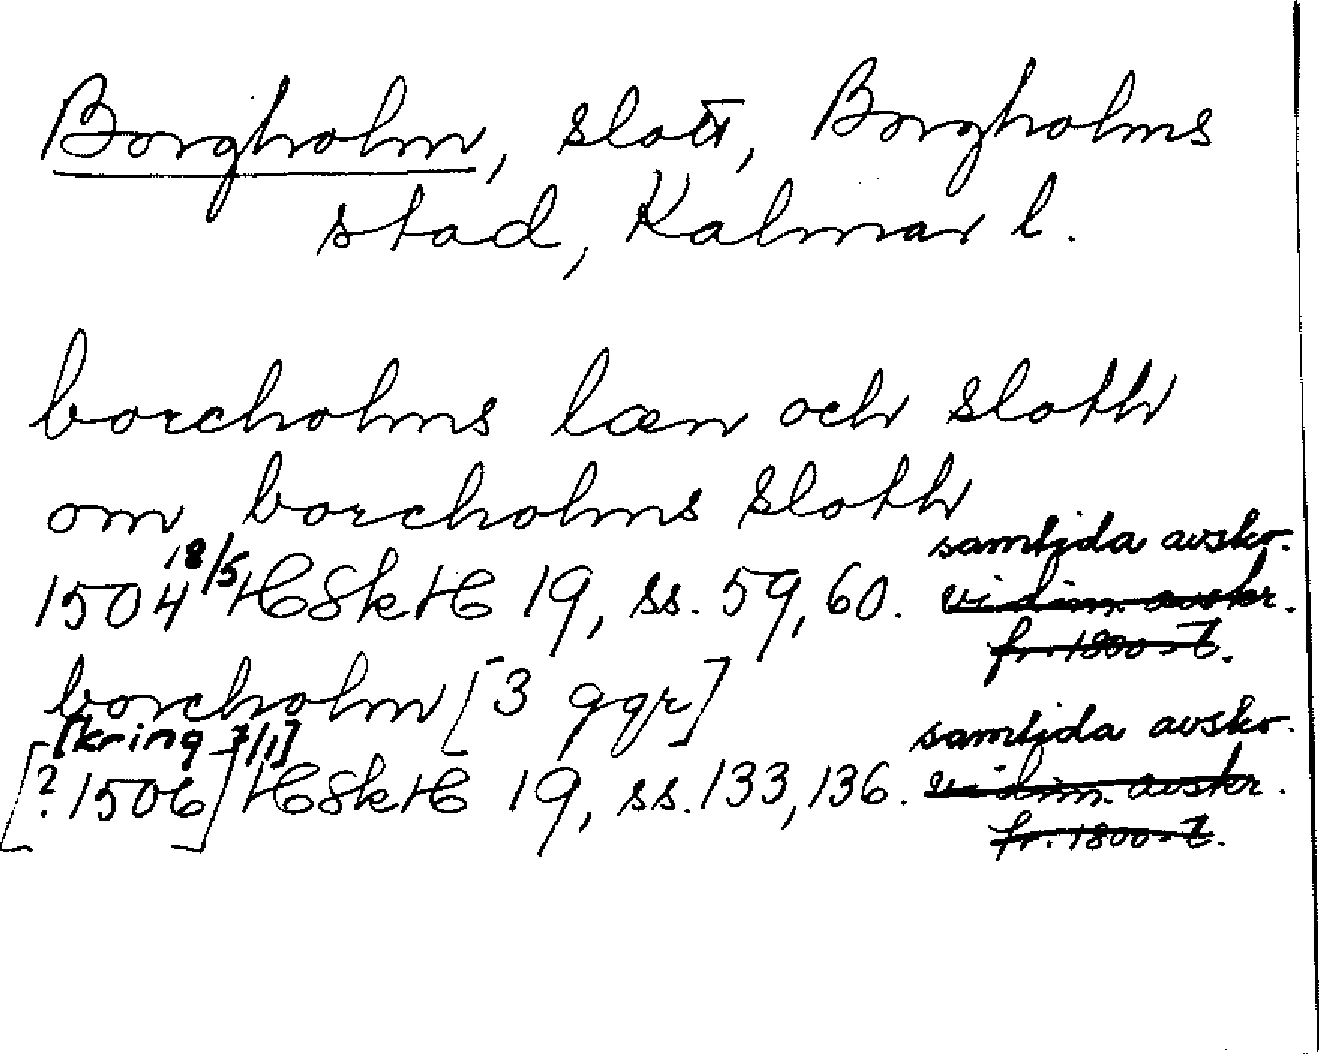 Borgholm, slott, Borgholms
stad, Kalmar l.
borcholms læn och sloth
om borcholms sloth
1504 18/5 HSkH 19, ss. 59, 60. samtida avskr.
vidim. avskr.
fr. 1800-t.
borcholm [3 ggr]
[kring 7/1]
[? 1506] HSkH 19, ss. 133, 136. samtida avskr.
vidim. avskr.
fr. 1800-t.